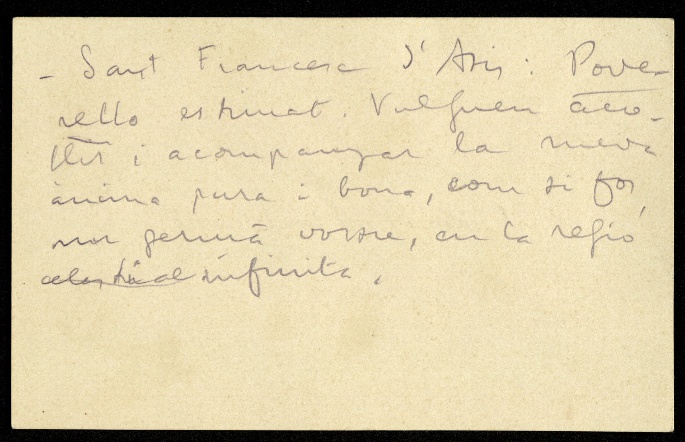 - Sant Francesc d'Asis: Pove-
rello estimat. Vulguen aco-
llir i acompanyar la meva
ànima pura i bona, com si fos
un germà vostre, en la regió
celestial infinita.